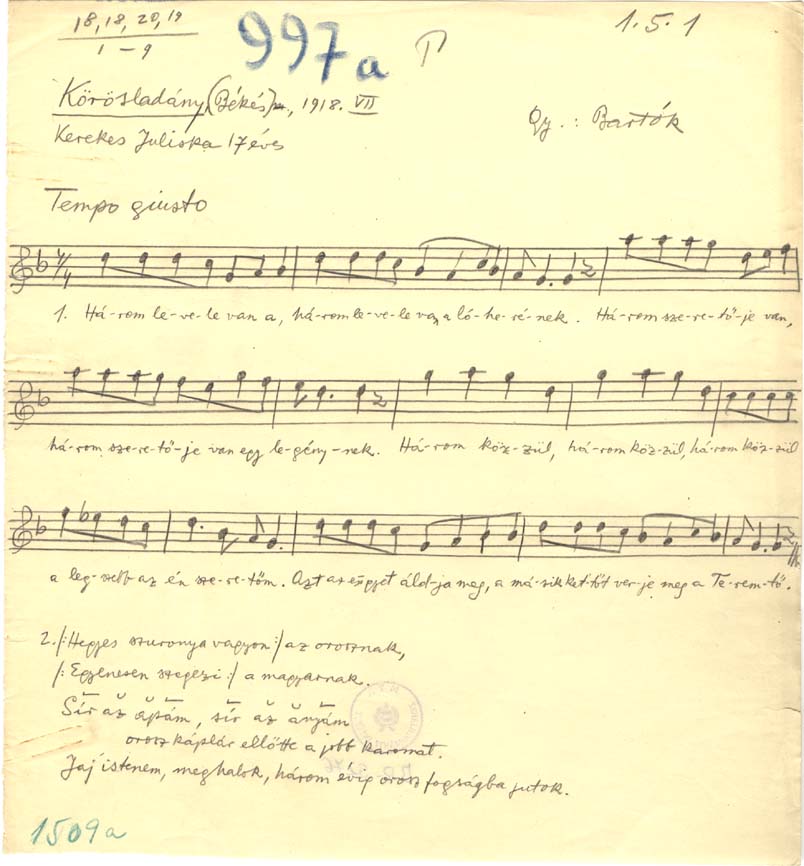 18, 18, 20, 19
1 – 9
997a
1.5.1
Körösladány, (Békés), 1918. VII
Kerekes Juliska 17 éves
Gy.: Bartók
Tempo giusto
1. Há-rom le-ve-le van a, há-rom le-ve-le van a ló-he-ré-nek. Há-rom sze-re-tő-je van,
há-rom sze-re-tő-je van egy le-gény-nek. Há-rom köz-zül, há-rom köz-zül, há-rom köz-zül
a leg-szebb az én sze-re-tőm. Azt az egyet áld-ja meg, a má-sik ket-tőt ver-je meg a Te-rem-tő.
2. /: Hegyes szuronya vagyon :/ az orosznak,
/: Egyenesen szegezi :/ a magyarnak.
Sír az apám, sír az anyám
orosz káplár ellőtte a jobb karomat.
Jaj istenem, meghalok, három évig orosz fogságba jutok.
1509a